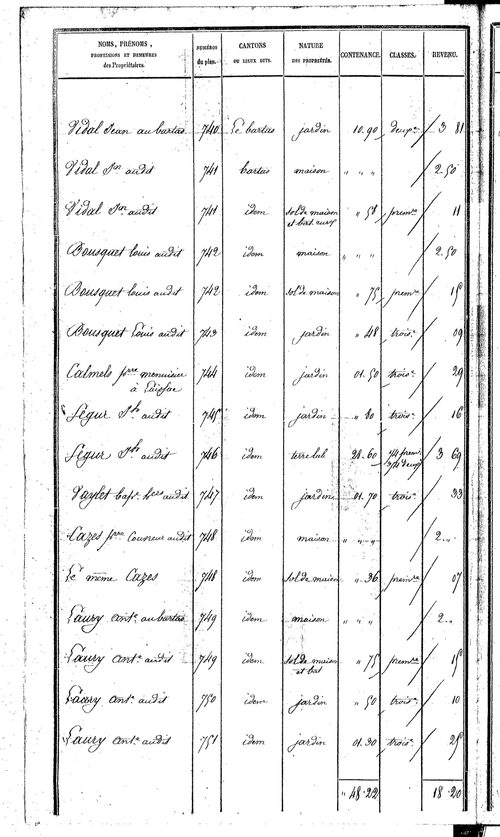 NOMS, PRÉNOMS, PROFESSIONS ET DEMEURES des Propriétaires. NUMÉROS du plan. CANTONS OU LIEUX DITS. NATURE DES PROPRIÉTÉS. CONTENANCE. CLASSES. REVENU.
Vidal Jean au bartas 740 Le bartas jardin 10.90 deuxe 3 81
Vidal Jn audit 741 bartas maison " " " 2.50
Vidal Jn audit 741 idem sol de maison " 51 premre 11
Bousquet louis audit 742 idem maison " " " 2.50
Bousquet louis audit 742 idem sol de maison " 75 premre 15
Bousquet Louis audit 743 idem jardin " 48 trois. 09
Calmels pierre menuisier 744 idem jardin 01.50 trois. 29
Segur Jh audit 745 idem jardin " 80 trois. 16
Segur Jh audit 746 idem terre lab 28.60 3 69
Vaylet bapt. hers audit 747 idem jardin 01.70 trois. 33
Cazes pierre Couvreur audit 748 idem maison " " " 2 ..
Le même Cazes 748 idem sol de maison " 36 premre 07
Laury ante au bartas 749 idem maison " " " 2 ..
Laury ante audit 749 idem sol de maison " 75 premre 15
et bat
Laury ant. audit 750 idem jardin " 50 trois. 10
Laury ante audit 751 idem jardin 01.30 trois. 25
" 48-22 18 20